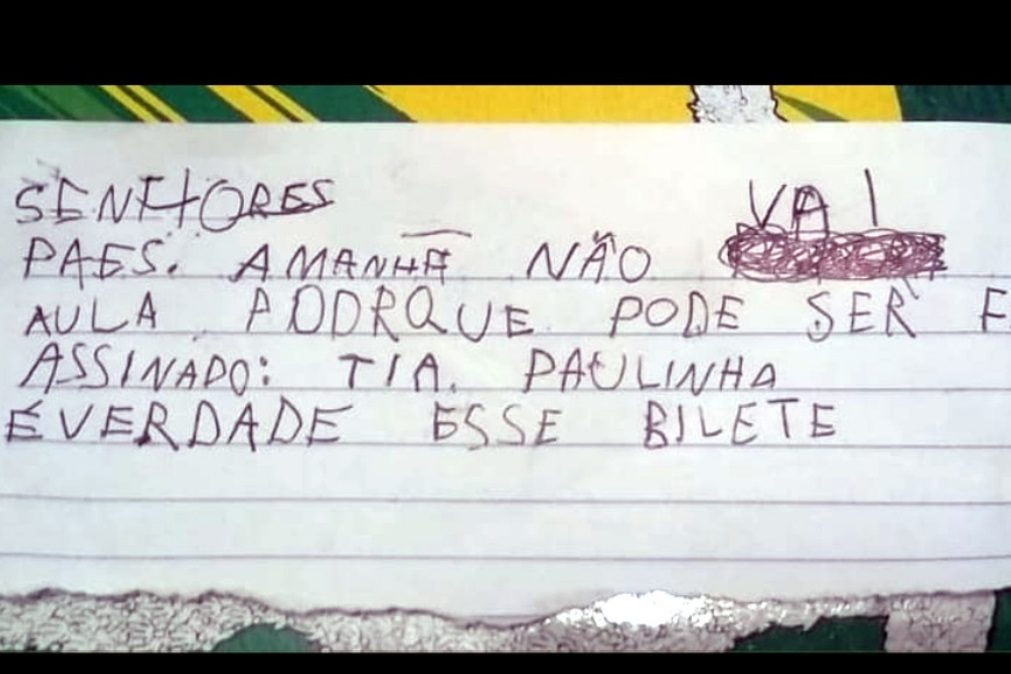 SENHORES
PAES. AMANHÃ NÃO VAI
AULA PODRQUE PODE SER F
ASSINADO: TIA. PAULINHA
É VERDADE ESSE BILETE